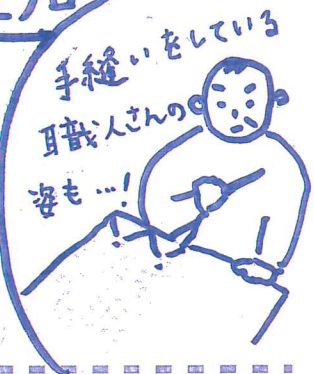 手縫いをしている
職人さんの
姿も…!